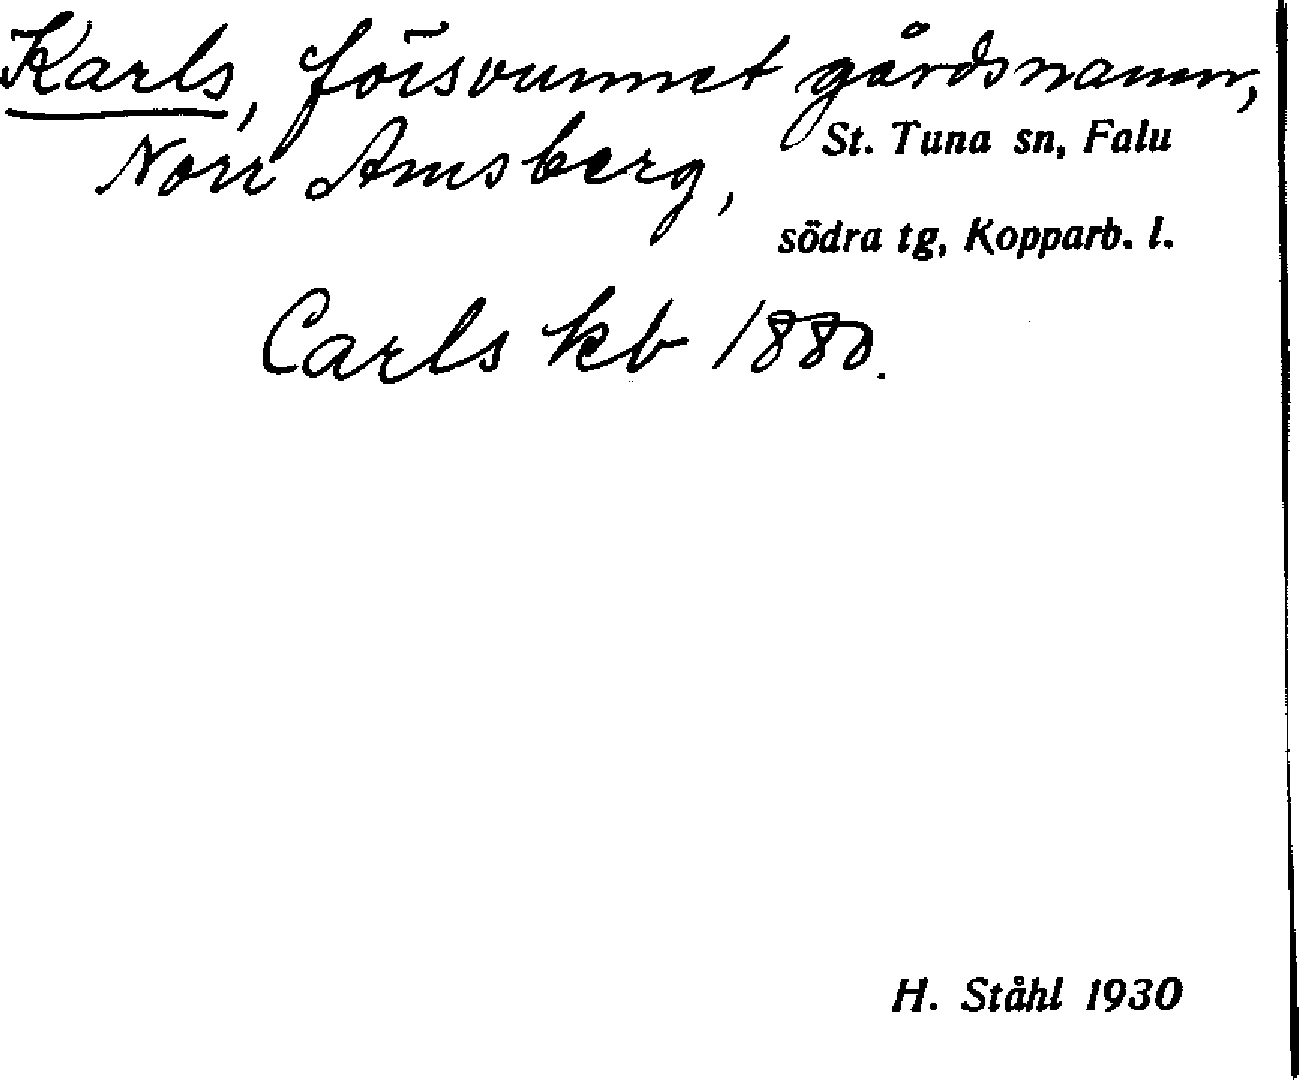 Karls, försvunnet gårdsnamn,
Norr Amsberg,
St. Tuna sn, Falu
södra tg, Kopparb. l.
Carls kb 1880.
H. Ståhl 1930